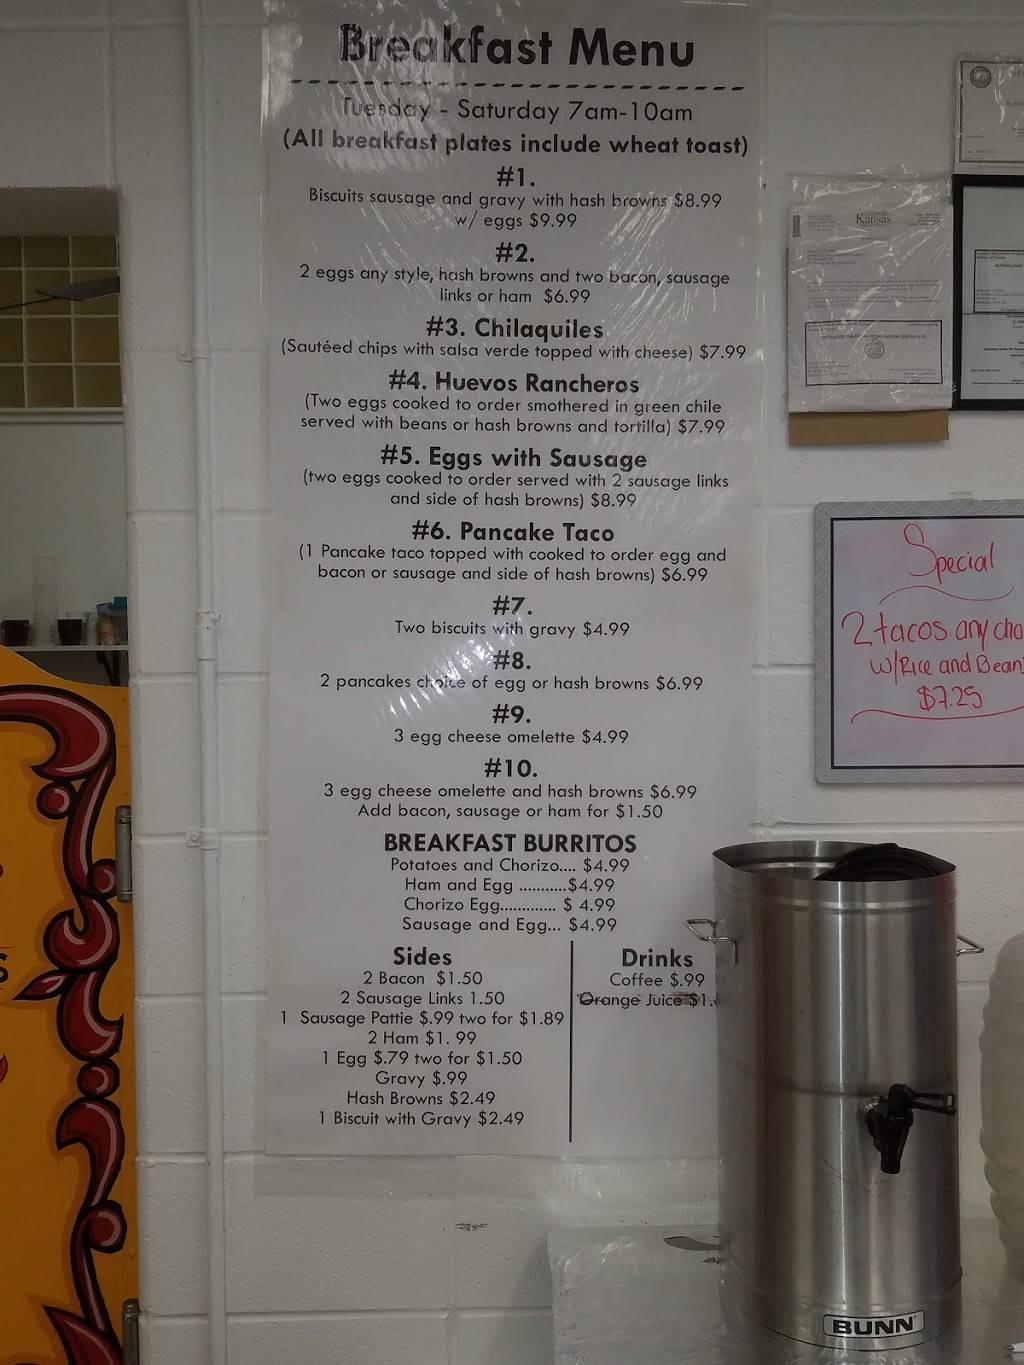 Breakfast Menu
Tuesday - Saturday 7am-10am
(All breakfast plates include wheat toast)
#1.
Biscuits sausage and gravy with hash browns $8.99
w/ eggs $9.99
#2.
2 eggs any style, hash browns and two bacon, sausage
links or ham $6.99
#3. Chilaquiles
(Sautéed chips with salsa verde topped with cheese) $7.99
#4. Huevos Rancheros
(Two eggs cooked to order smothered in green chile
served with beans or hash browns and tortilla) $7.99
#5. Eggs with Sausage
(two eggs cooked to order served with 2 sausage links
and side of hash browns) $8.99
#6. Pancake Taco
(1 Pancake taco topped with cooked to order egg and
bacon or sausage and side of hash browns) $6.99
#7.
Two biscuits with gravy $4.99
#8.
2 pancakes choice of egg or hash browns $6.99
#9.
3 egg cheese omelette $4.99
#10.
3 egg cheese omelette and hash browns $6.99
Add bacon, sausage or ham for $1.50
BREAKFAST BURRITOS
Potatoes and Chorizo.... $4.99
Ham and Egg ...........$4.99
Chorizo Egg............. $ 4.99
Sausage and Egg... $4.99
Sides
2 Bacon $1.50
2 Sausage Links 1.50
1 Sausage Pattie $.99 two for $1.89
2 Ham $1. 99
1 Egg $.79 two for $1.50
Gravy $.99
Hash Browns $2.49
1 Biscuit with Gravy $2.49
Drinks
Coffee $.99
Orange Juice $1.
Kansas
Special
2 tacos any cho
w/Rice and Bean
$7.25
BUNN